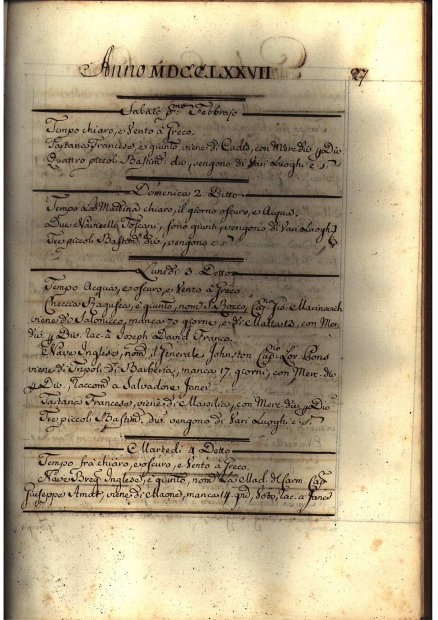 Anno MDCCLXXVII
27
Sabato P.mo Febbrajo
Tempo chiaro, e Vento à Greco.
Tartana Francese, è giunto viene di Cadis, con Merc. dio p Dio
Quattro piccoli Bastim.ti div. vengono di Vari Luoghi e s.a
Domenica 2 Detto
Tempo La Mattina chiaro, il giorno oscuro, e Acqua;
Due Navicelli Toscani, sono giunti, vengono di Vari Luoghi
Tre piccoli Bastim.ti div. vengono
Lunedi 3 Detto
Tempo Acqua, e oscuro, e Vento à Greco.
Checcia Ragusea, è giunto, nom. S. Rocco, Cap.no Gio Marinovich
viene di Salonicco, manca 70 giorni, e di Malta 12, con Mer-
die p Div. rac. à Joseph David Franco.
Nave Inglese, nom. il Jenerale Johnston Cap.no Lor. Bons
viene di Tripoli di Barberia, manca 17 giorni, con Merc. die
p Div. Raccom. a Salvadore Janer
Tartana Francese, viene di Marsilia, con Merc. die p Div.
Tre piccoli Bastim. div. vengono di Vari Luoghi e s.a
Martedi 4 Detto
Tempo frà chiaro, e oscuro, e Vento à Greco.
Nave Brig. Inglese, è giunto, nom. La Mad. del Carm. Cap.
Giuseppe Amat, viene di Maone, manca 4 gni, Voto, rac. a Janer